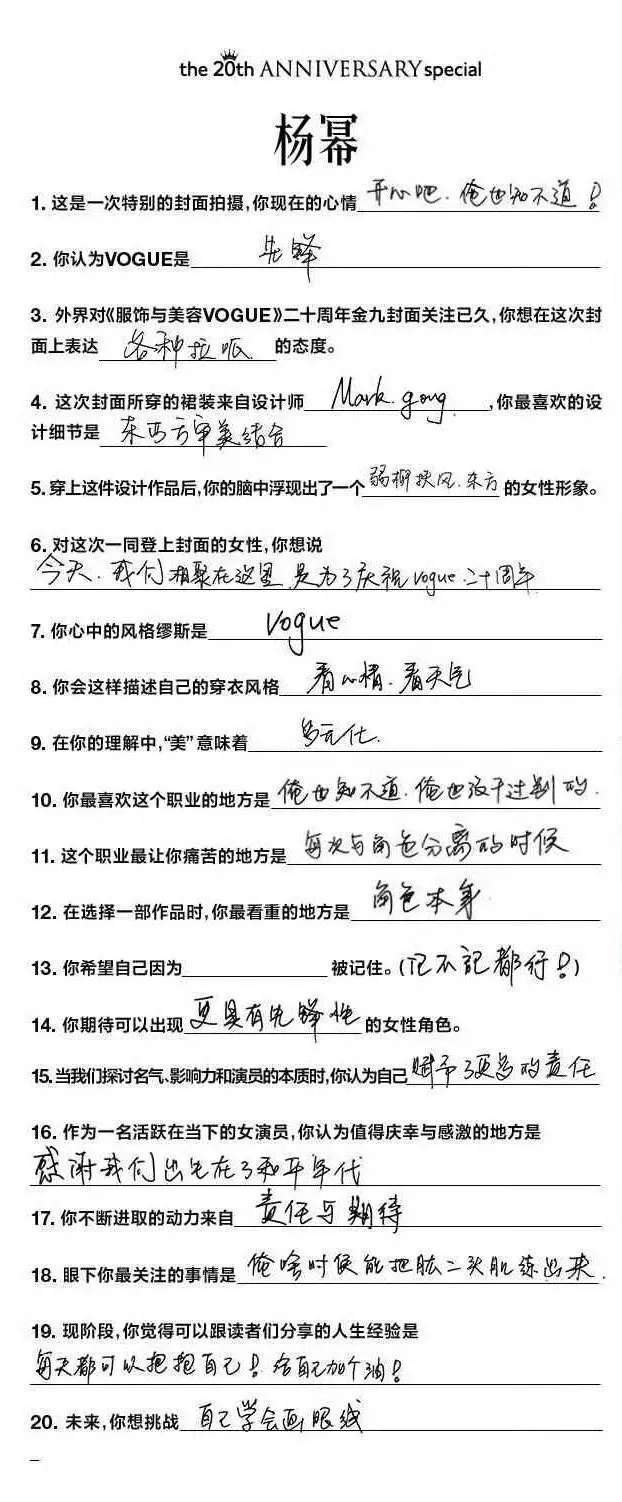 the 20th ANNIVERSARY special
杨幂
1. 这是一次特别的封面拍摄,你现在的心情 开心吧. 俺也知不道!
2. 你认为VOGUE是 先锋
3. 外界对《服饰与美容VOGUE》二十周年金九封面关注已久,你想在这次封
面上表达 各种拉呱 的态度。
4. 这次封面所穿的裙装来自设计师 Mark. gong ,你最喜欢的设
计细节是 东西方审美结合
5. 穿上这件设计作品后,你的脑中浮现出了一个 弱柳扶风.东方 的女性形象。
6. 对这次一同登上封面的女性,你想说
今天.我们相聚在这里 是为了庆祝vogue二十周年
7. 你心中的风格缪斯是 Vogue
8. 你会这样描述自己的穿衣风格 看心情.看天气
9. 在你的理解中,“美”意味着 多元化.
10. 你最喜欢这个职业的地方是 俺也知不道.俺也没干过别的.
11. 这个职业最让你痛苦的地方是 每次与角色分离的时候
12. 在选择一部作品时,你最看重的地方是 角色本身
13. 你希望自己因为 被记住。(记不記都行!)
14. 你期待可以出现 更具有先锋性 的女性角色。
15. 当我们探讨名气、影响力和演员的本质时,你认为自己 赋予了更多的责任
16. 作为一名活跃在当下的女演员,你认为值得庆幸与感激的地方是
感谢我们出生在了和平年代
17. 你不断进取的动力来自 责任与期待
18. 眼下你最关注的事情是 俺啥时候能把肱二头肌练出来.
19. 现阶段,你觉得可以跟读者们分享的人生经验是
每天都可以抱抱自己!给自己加个油!
20. 未来,你想挑战 自己学会画眼线